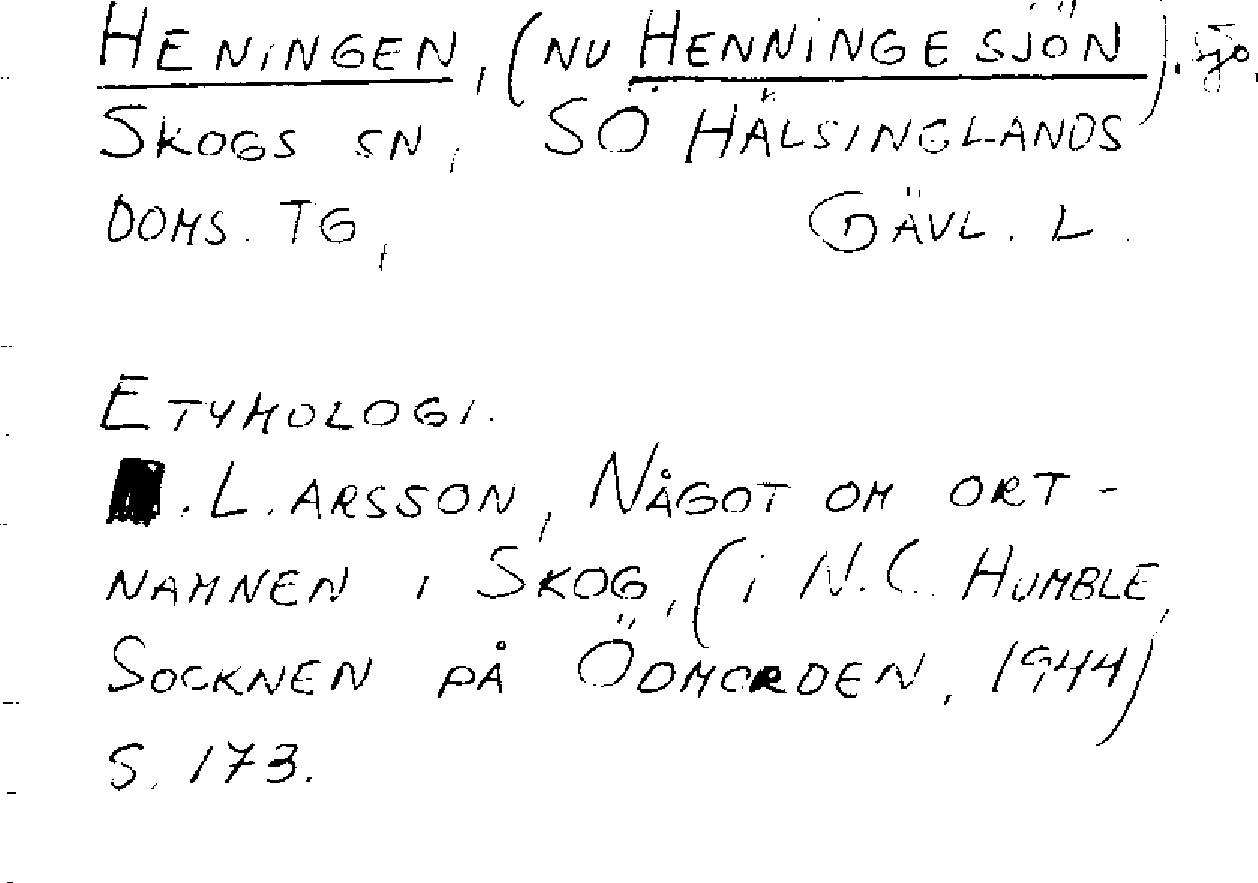 HENINGEN, (NU HENNINGESJÖN). sjö,
SKOGS SN, SÖ HÄLSINGLANDS
DOMS. TG, GÄVL. L.
ETYMOLOGI.
. L. ARSSON, NÅGOT OM ORT-
NAMNEN I SKOG, (i N.C. HUMBLE,
SOCKNEN PÅ ÖDMORDEN, 1944)
S. 173.